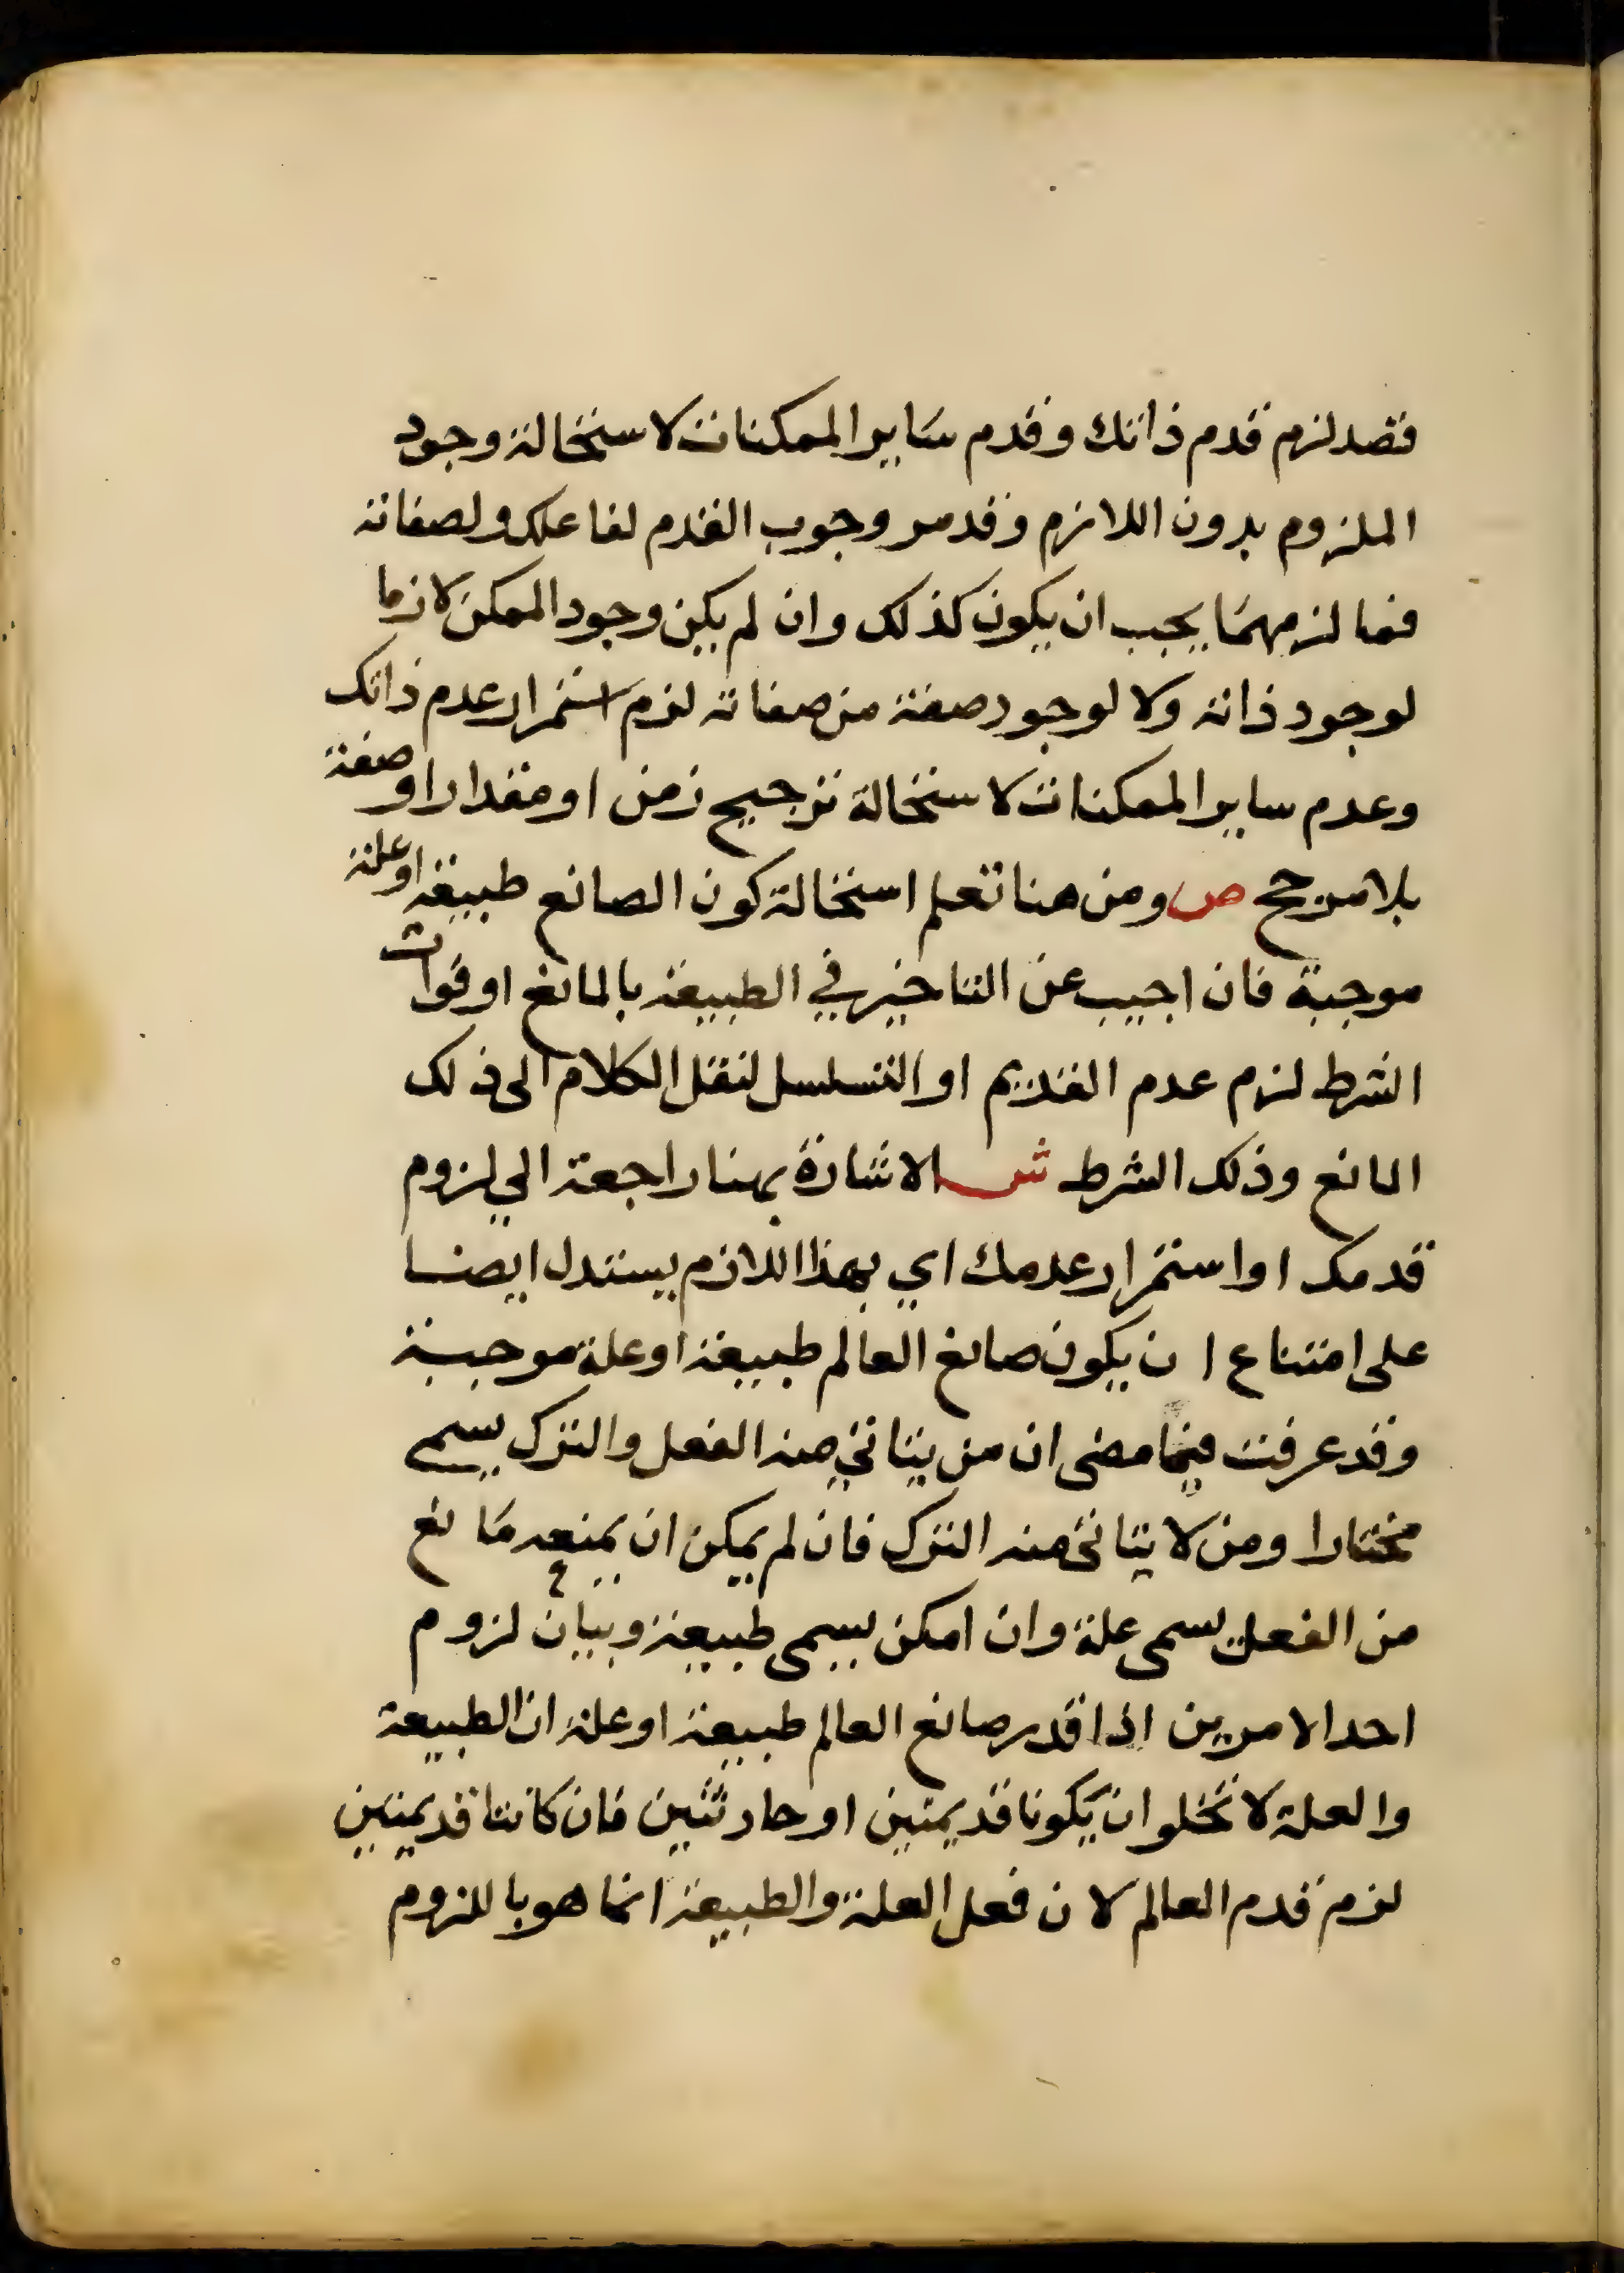 فقد لزم قدم ذاتك وقدم سَاير الممكنات لاستحالة وجود
الملزوم بدون اللازم وقد مر وجوب القدم لفاعلك ولصفاته
فما لزمهمَا يجب ان يكون كذلك وان لم يكن وجود الممكن لازما
لوجود ذاته ولا لوجود صفة من صفاته لزم استمرار عدم ذاتك
وعدم ساير الممكنات لاستحالة ترجيح زمن او مقدار او صفة
بلا مرجح ص ومن هنا تعلم استحالة كون الصانع طبيعة او علة
موجبة فان اجيب عن التاخير في الطبيعة بالمانع او فوات
الشرط لزم عدم القديم او التسلسل لنقل الكلام الى ذلك
المانع وذلك الشرط ش الاشارة بهنا راجعة الي لزوم
قدمك او استمرار عدمك اي بهذا اللازم يستدل ايضا
على امتناع ان يكون صانع العالم طبيعة او علة موجبة
وقد عرفت فيما مضى ان من يتاتي منه الفعل والترك يسمى
مختارا ومن لا يتاتى منه الترك فان لم يمكن ان يمنعه مَانع
من الفعل يسمى علة وان امكن يسمى طبيعة وبيان لزوم
احد الامرين اذا قدر صانع العالم طبيعة او علة ان الطبيعة
والعلة لا تخلو ان يكونا قديمتين او حادثتين فان كانتا قديمتين
لزم قدم العالم لان فعل العلة والطبيعة انما هو باللزوم